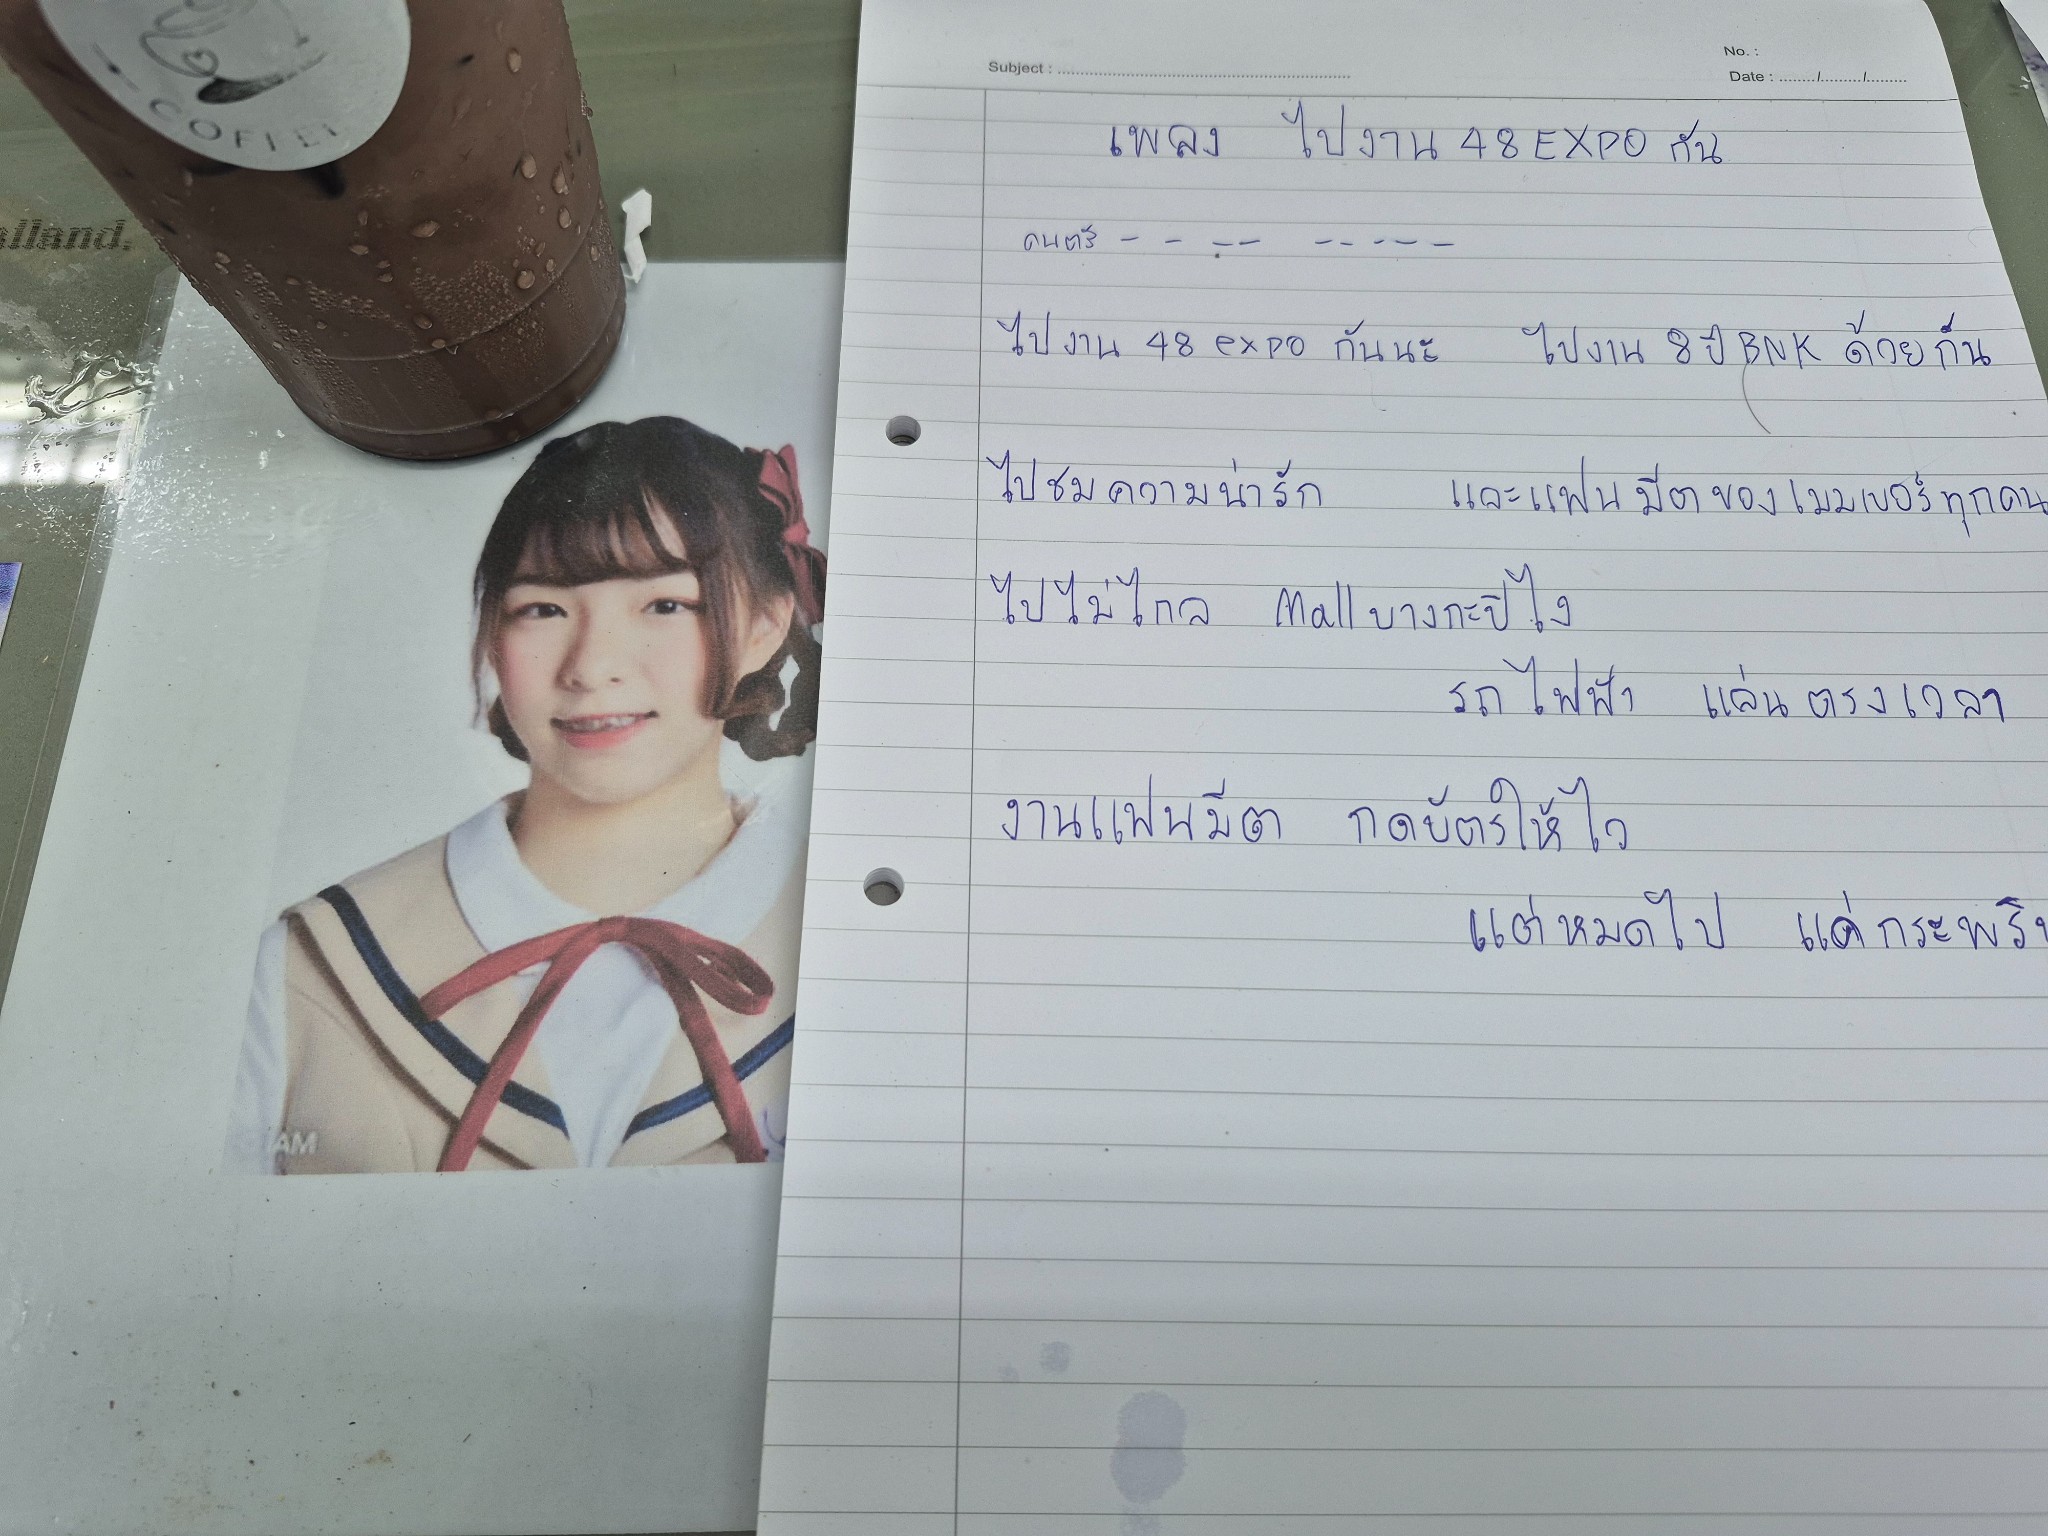 COFFEE
ailand.
AM
Subject :
No. :
Date : ......../........./.........
เพลง ไปงาน 48 EXPO กัน
ดนตรี - - -- -- - - -
ไปงาน 48 expo กันนะ ไปงาน 8 ปี BNK ด้วยกัน
ไปชมความน่ารัก และแฟนมีตของเมมเบอร์ทุกคน
ไปไม่ไกล Mall บางกะปิไง
รถไฟฟ้า แล่นตรงเวลา
งานแฟนมีต กดบัตรให้ไว
แต่หมดไป แค่กระพริบ